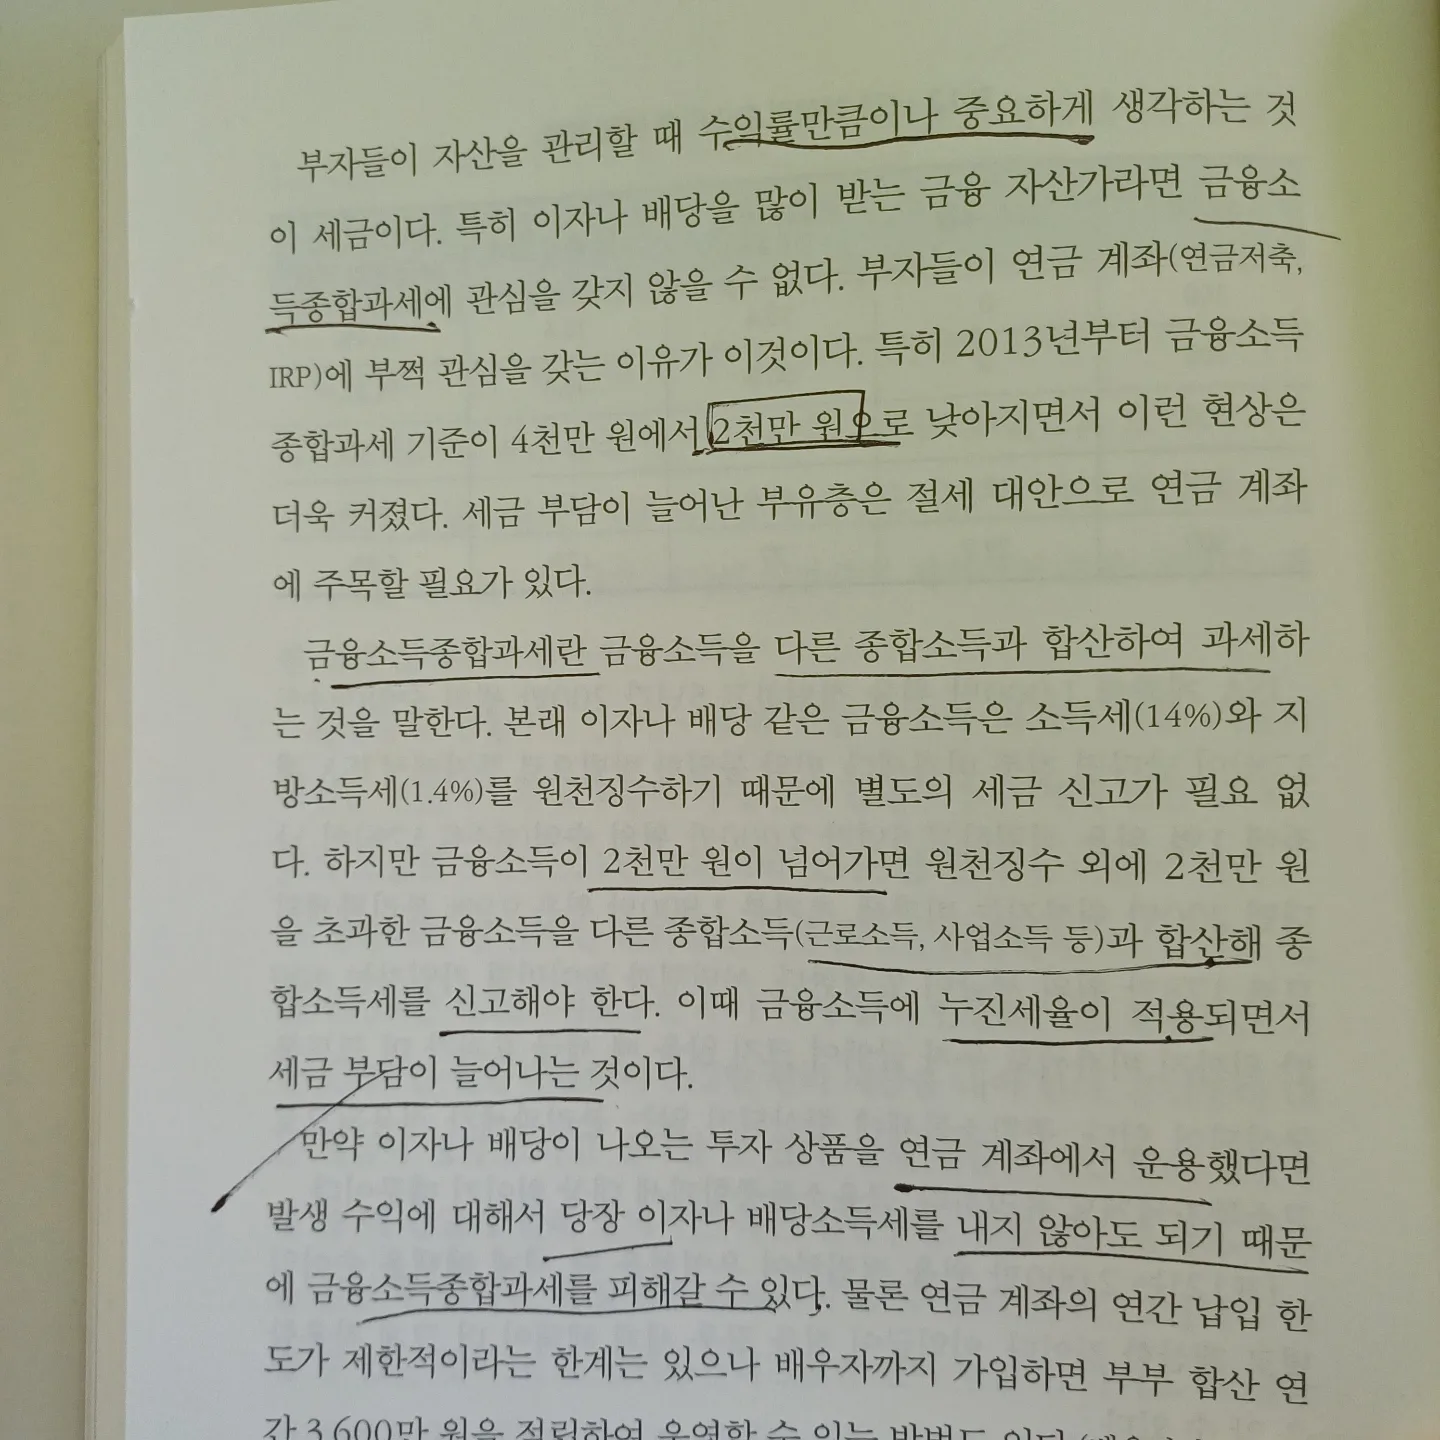 부자들이 자산을 관리할 때 수익률만큼이나 중요하게 생각하는 것
이 세금이다. 특히 이자나 배당을 많이 받는 금융 자산가라면 금융소
득종합과세에 관심을 갖지 않을 수 없다. 부자들이 연금 계좌(연금저축,
IRP)에 부쩍 관심을 갖는 이유가 이것이다. 특히 2013년부터 금융소득
종합과세 기준이 4천만 원에서 2천만 원으로 낮아지면서 이런 현상은
더욱 커졌다. 세금 부담이 늘어난 부유층은 절세 대안으로 연금 계좌
에 주목할 필요가 있다.
금융소득종합과세란 금융소득을 다른 종합소득과 합산하여 과세하
는 것을 말한다. 본래 이자나 배당 같은 금융소득은 소득세(14%)와 지
방소득세(1.4%)를 원천징수하기 때문에 별도의 세금 신고가 필요 없
다. 하지만 금융소득이 2천만 원이 넘어가면 원천징수 외에 2천만 원
을 초과한 금융소득을 다른 종합소득(근로소득, 사업소득 등)과 합산해 종
합소득세를 신고해야 한다. 이때 금융소득에 누진세율이 적용되면서
세금 부담이 늘어나는 것이다.
만약 이자나 배당이 나오는 투자 상품을 연금 계좌에서 운용했다면
발생 수익에 대해서 당장 이자나 배당소득세를 내지 않아도 되기 때문
에 금융소득종합과세를 피해갈 수 있다. 물론 연금 계좌의 연간 납입 한
도가 제한적이라는 한계는 있으나 배우자까지 가입하면 부부 합산 연
간 3,600만 원을 적립하여 운영할 수 있는 방법도 있다